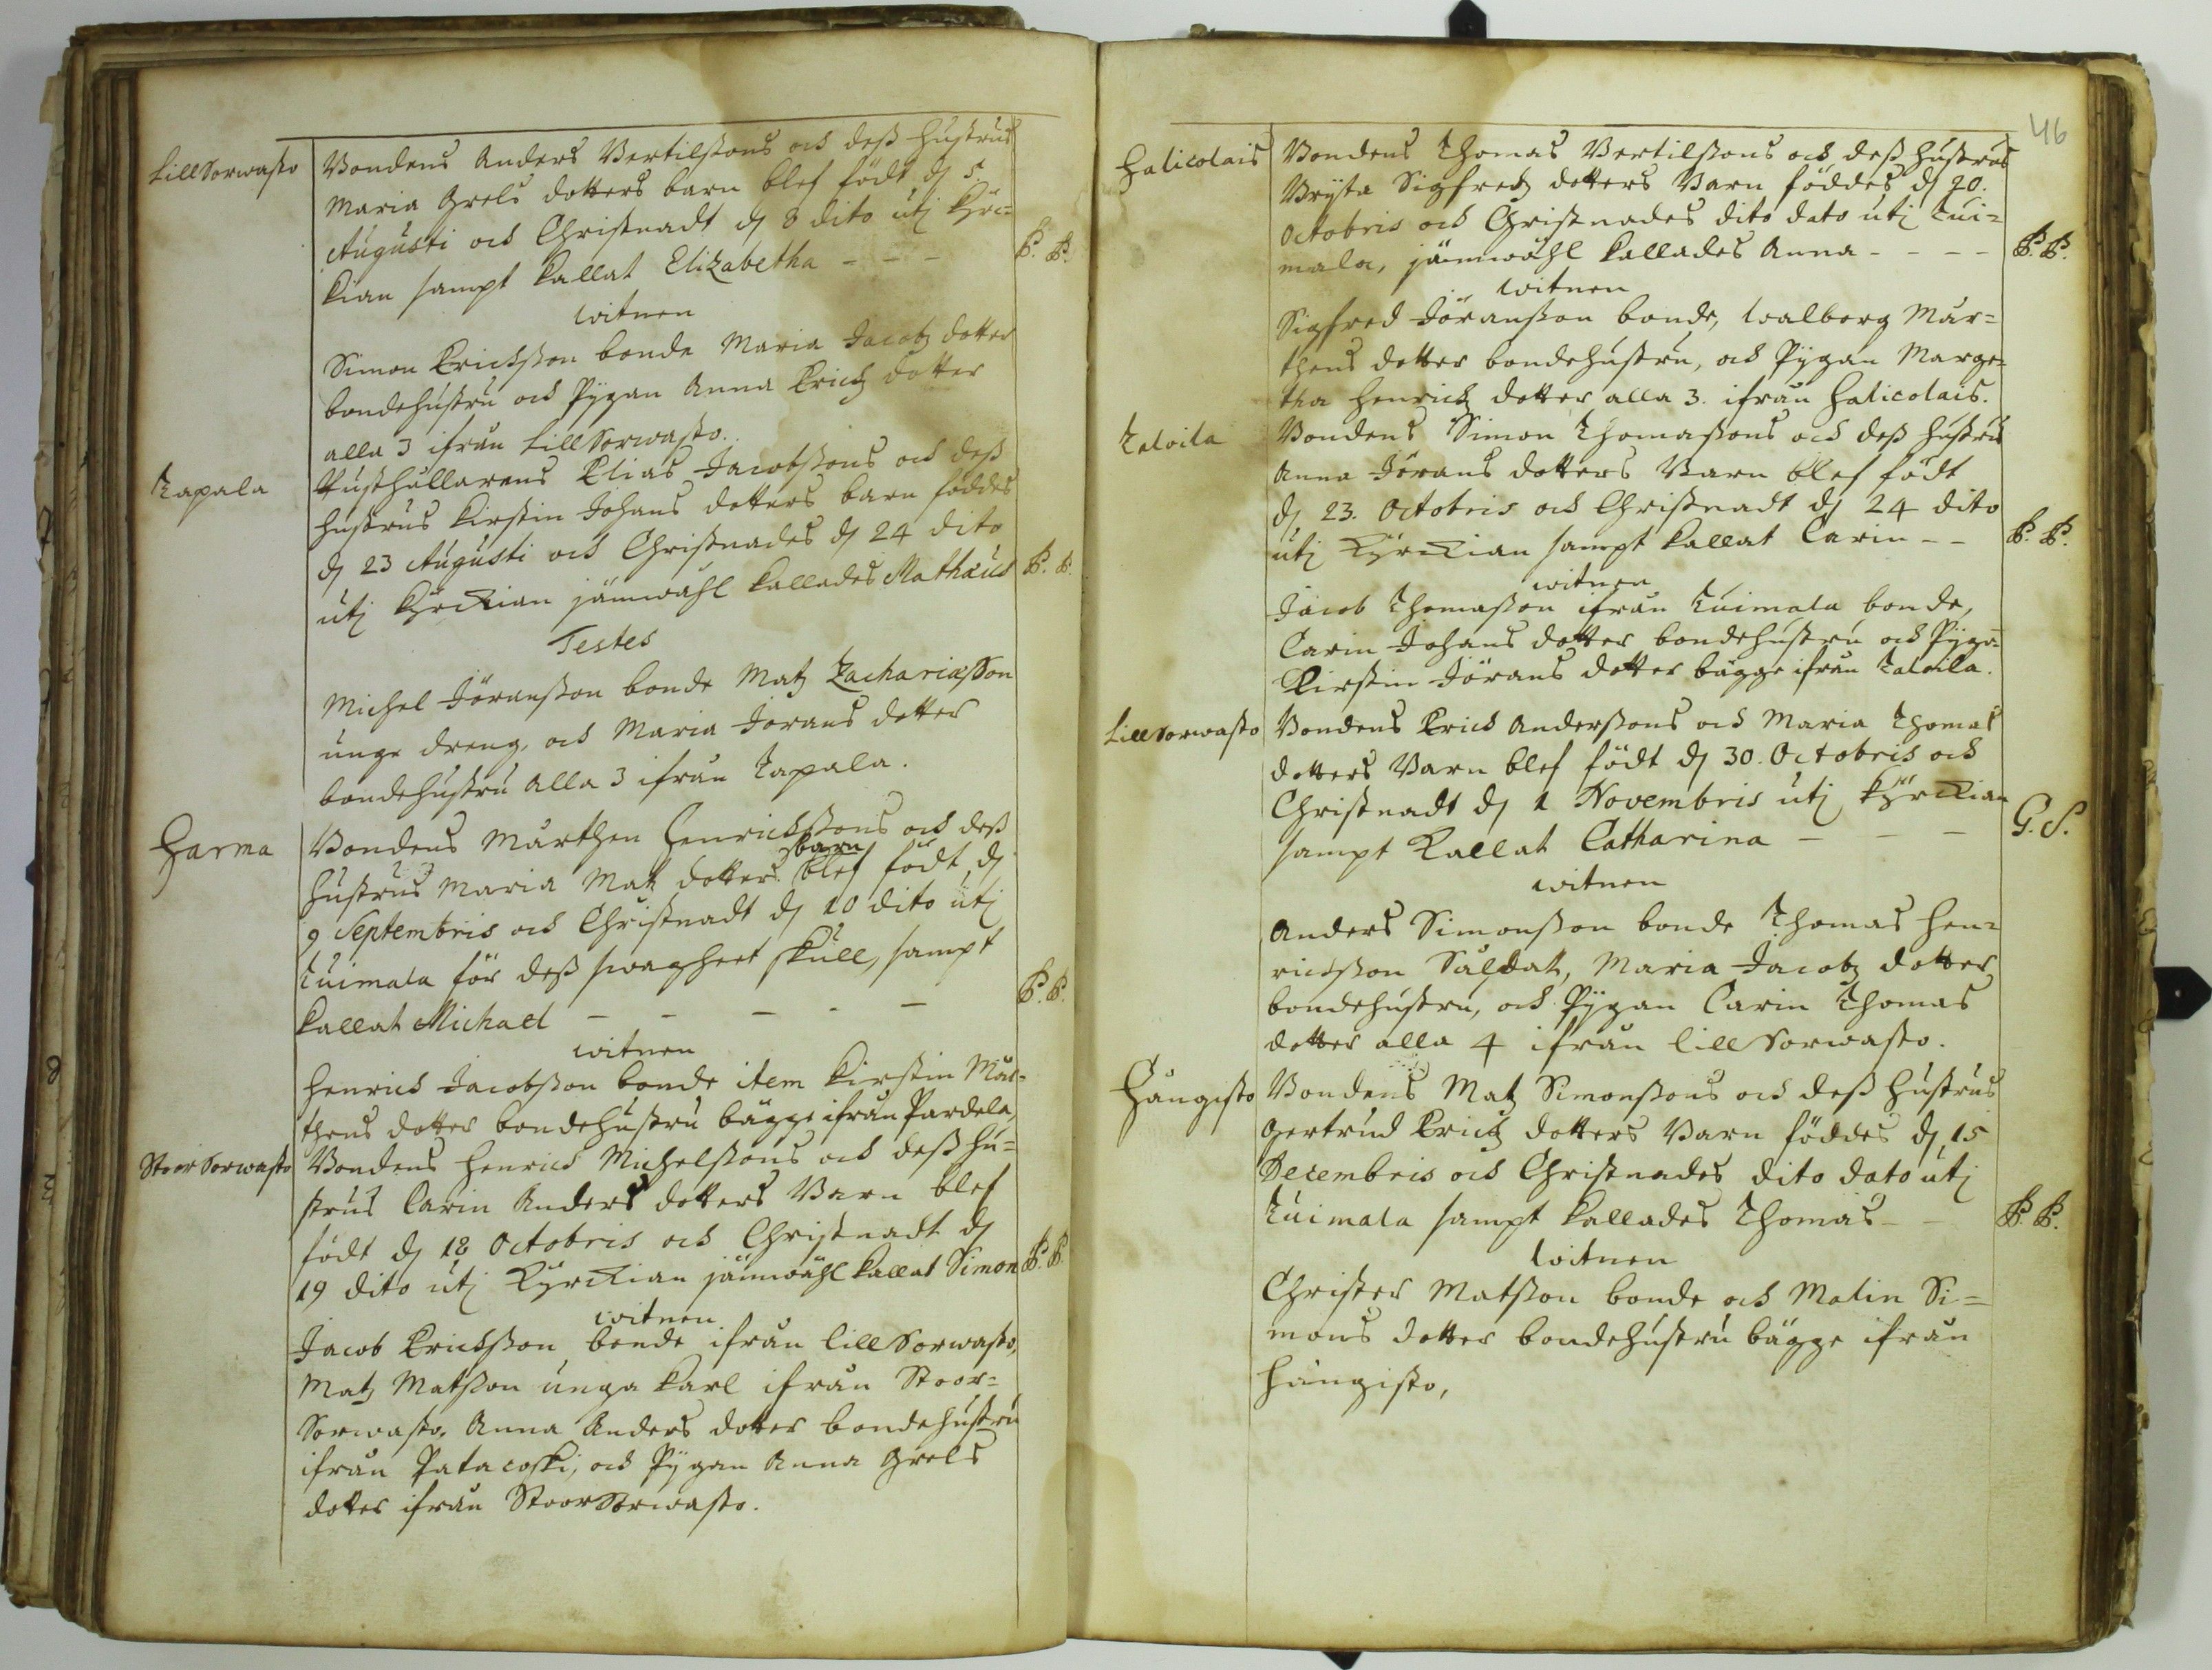 Lill Sorwasto
Bondens Anders Bertilssons och dess hustrus
Maria Grels dotters barn blef födt d. 5.
Augusti och Christnadt d. 8 dito utj Kyrc=
kian sampt kallat Elizabetha - - -
B. B.
witnen
Simon Erichsson bonde Maria Jacobz dotter
bondehustru och Pygan Anna Erichz dotter
alla 3 ifrån Lill Sorwasto.
Tapala
Rusthållarens Elias Jacobssons och dess
hustrus Kirstin Johans dotters barn föddes
d. 23 Augusti och Christnades d. 24 dito
utj Kyrckian jämwähl kallades Mathæus
B. B.
Testes
Michel Jöransson bonde Matz Zachariæsson
unge dreng, och Maria Jörans dotter
bondehustru alla 3 ifrån Tapala.
Harma
Bondens Mårthen Henrichssons och dess
hustrus Maria Matz dotters barn blef födt d.
9 Septembris och Christnadt d. 10 dito utj
Tuimala för dess swagheet skull, sampt
kallat Michael - - - - -
B. B.
witnen
Henrich Jacobsson bonde item Kirstin Mår=
thens dotter bondehustru bägge ifrån Pardela
Stoor Sorwasto
Bondens Henrich Michelssons och dess hu=
strus Carin Anders dotters Barn blef
födt d. 18 Octobris och Christnadt d.
19 dito utj Kyrckian jämwähl kallat Simon
B. B.
witnen
Jacob Erichsson bonde ifrån Lill Sorwasto,
Matz Matsson unga karl ifrån Stoor=
Sorwasto. Anna Anders dotter bondehustru
ifrån Patacoski, och Pygan Anna Grels
dotter ifrån Stoor Sorwasto.
46
Halicolais
Bondens Thomas Bertilssons och dess hustrus
Bryta Sigfredz dotters Barn föddes d. 20.
Octobris och Christnades dito dato utj Tui=
mala, jämwähl kallades Anna - - - -
B. B.
witnen
Sigfred Jöransson bonde, Walborg Mår=
thens dotter bondehustru, och Pygan Marge=
tha Henrichz dotter alla 3. ifrån Halicolais.
Taloila
Bondens Simon Thomassons och dess hustru
Anna Jörans dotters Barn blef födt
d. 23. Octobris och Christnadt d. 24 dito
utj Kyrckian sampt kallat Carin - -
B. B.
witnen
Jacob Thomasson ifrån Tuimala bonde,
Carin Johans dotter bondehustru och Pyga=
Kirstin Jörans dotter bägge ifrån Taloila.
Lill Sorwasto
Bondens Erich Anderssons och Maria Thomas
dotters Barn blef födt d. 30. Octobris och
Christnadt d. 1 Novembris utj Kyrckian
sampt kallat Catharina - - -
G. S.
witnen
Anders Simonsson bonde Thomas Hen=
richsson Saldat, Maria Jacobz dotter
bondehustru, och Pygan Carin Thomas
dotter alla 4 ifrån Lill Sorwasto.
Hångisto
Bondens Matz Simonssons och dess hustrus
Gertrud Erichz dotters Barn föddes d. 15
Decembris och Christnades dito dato utj
Tuimala sampt kallades Thomas - -
B. B.
Witnen
Christer Matsson bonde och Malin Si=
mons dotter bondehustru bägge ifrån
Hångisto,